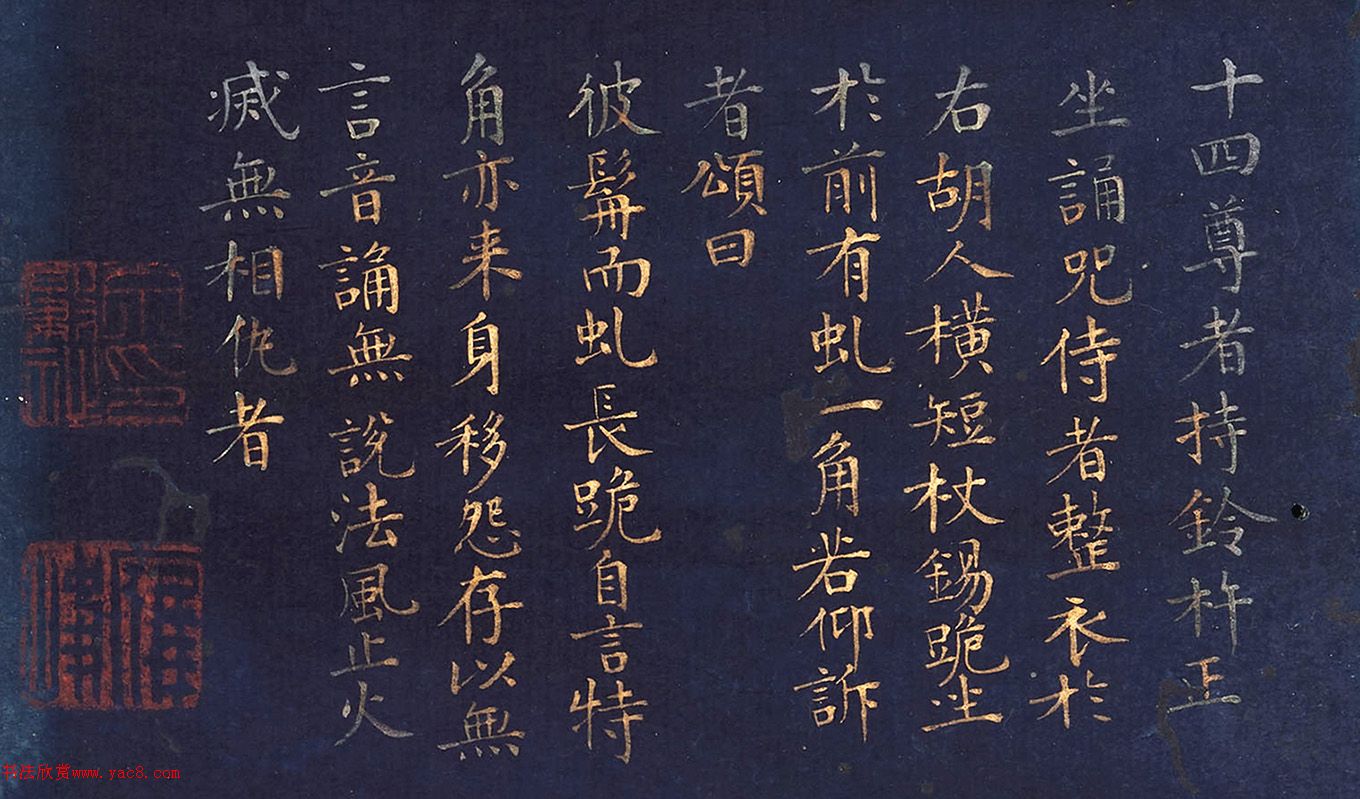 十四尊者持鈴杵正
坐誦咒侍者整衣於
右胡人橫短杖錫跪坐
於前有虬一角若仰訴
者頌曰
彼髯而虬長跪自言特
角亦来身移怨存以無
言音誦無說法風止火
滅無相仇者
书法欣赏www.yac8.com